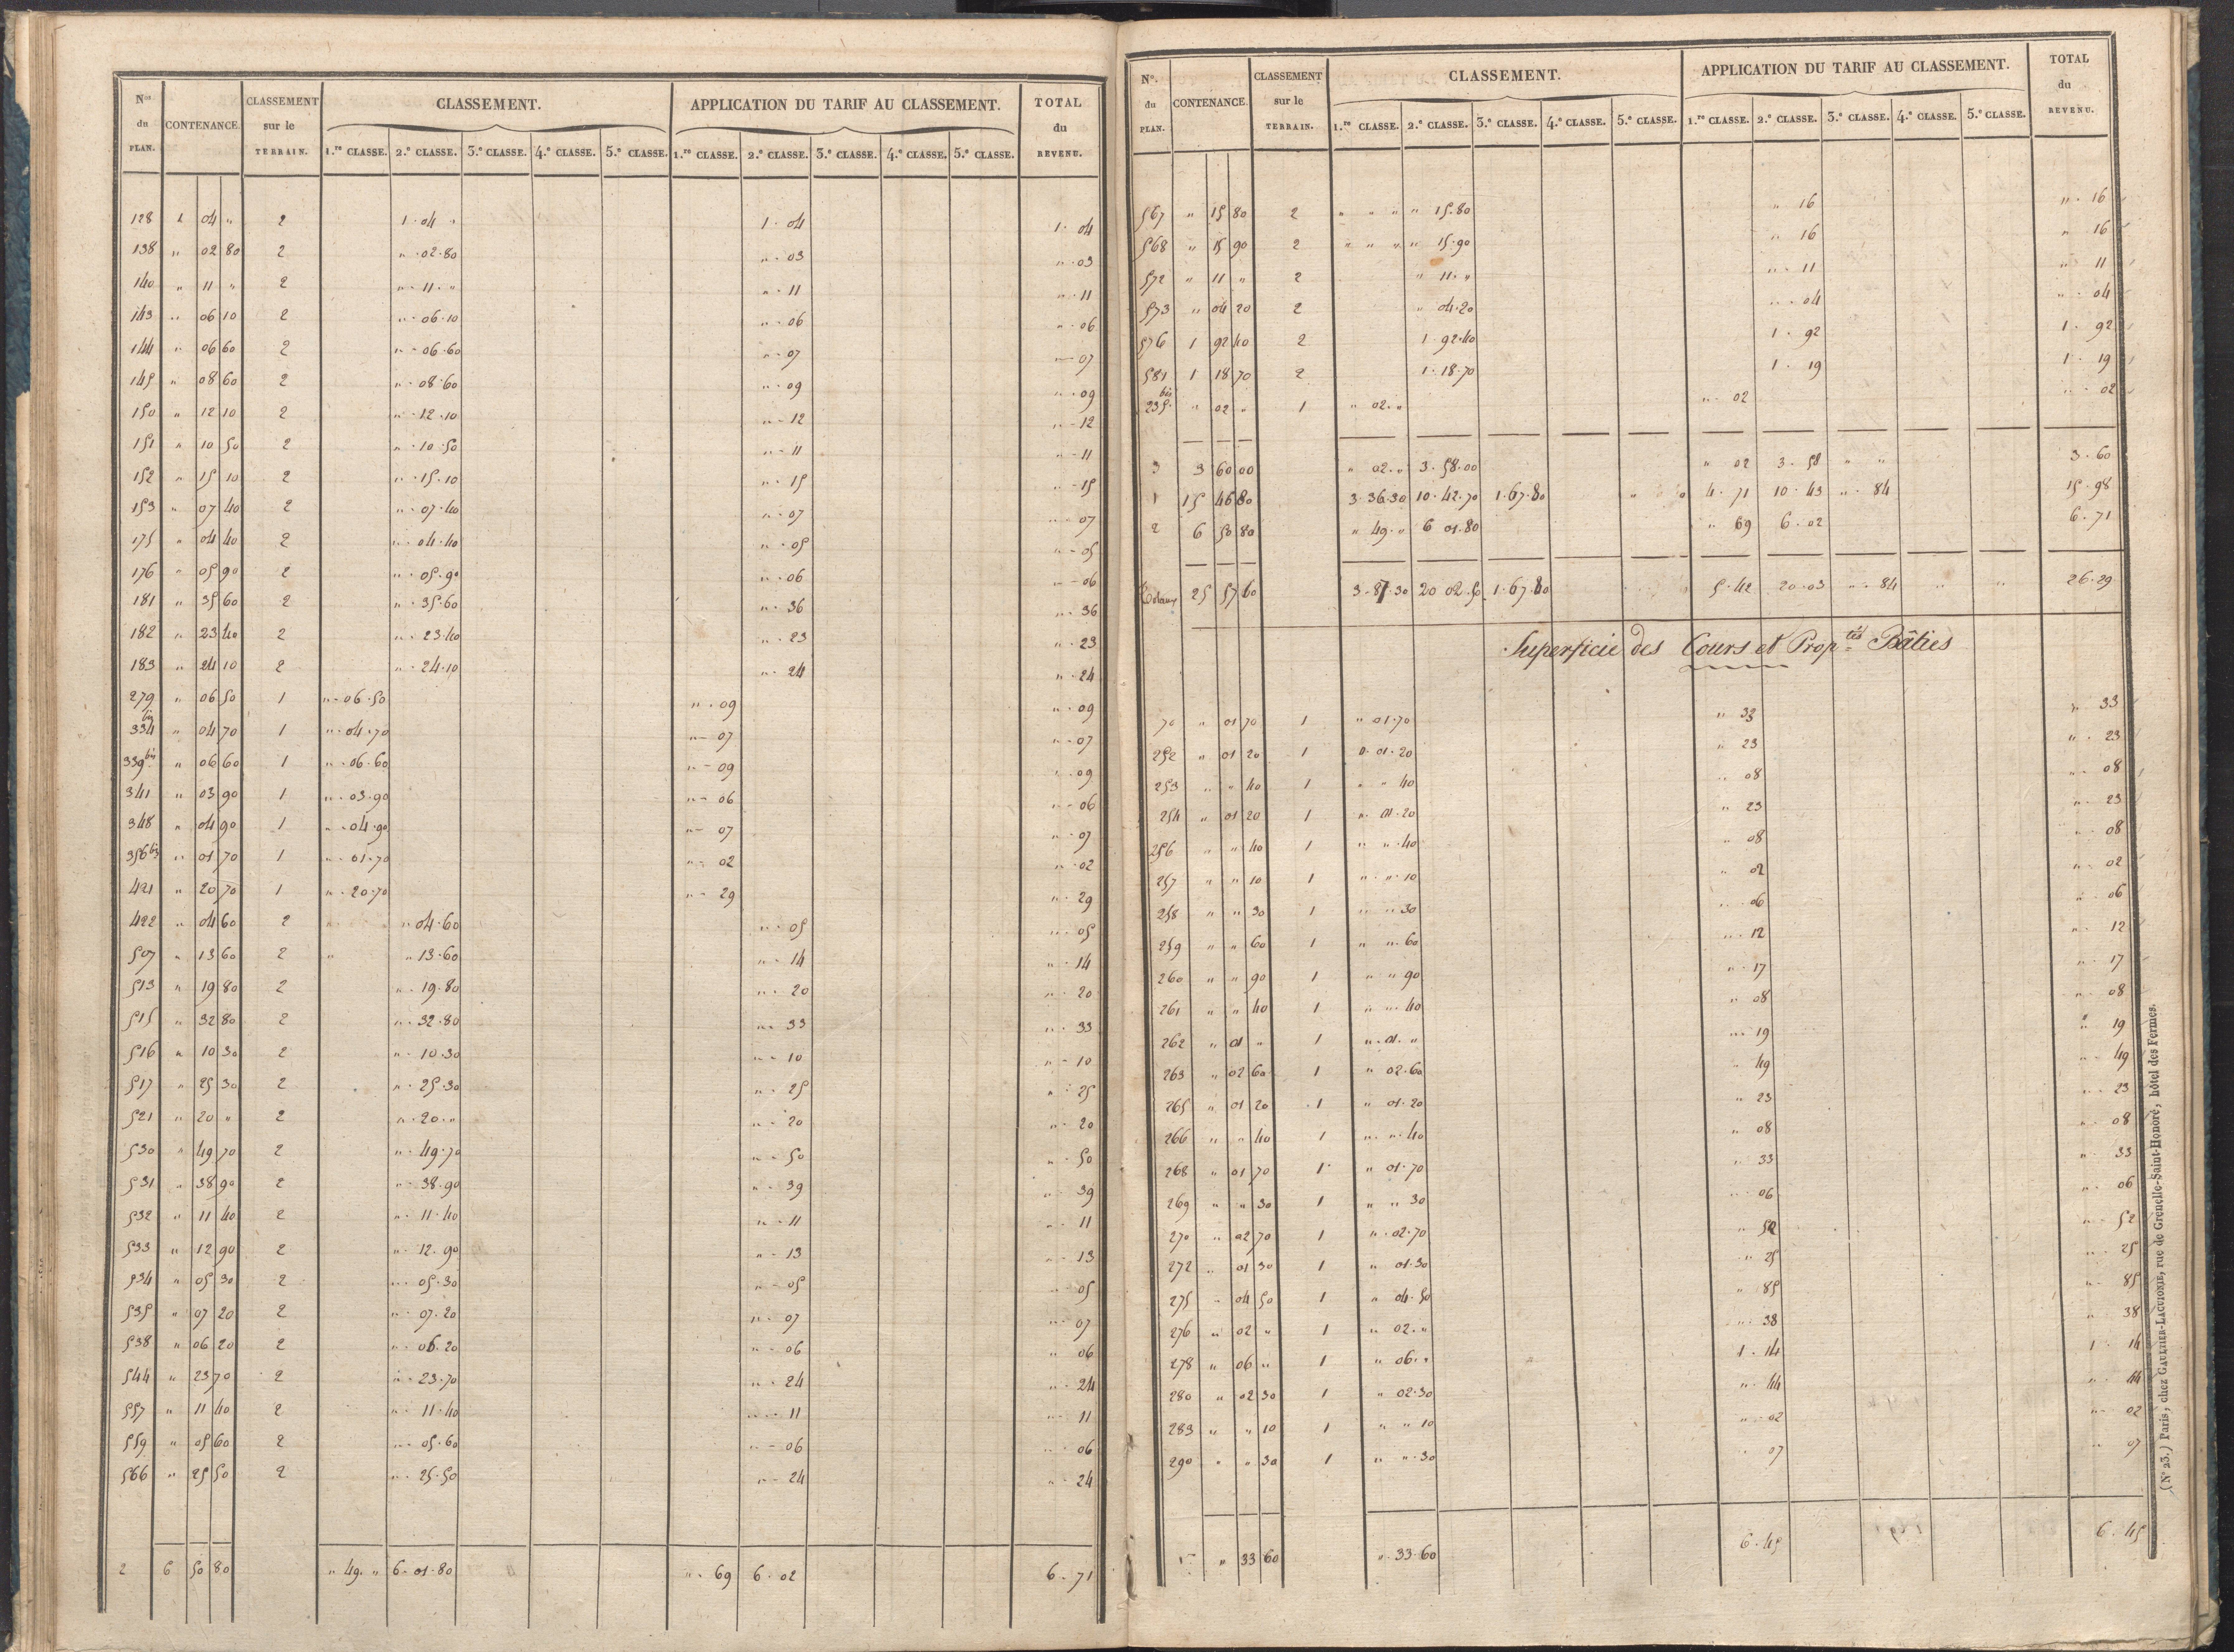 Nos du PLAN. CONTENANCE. CLASSEMENT sur le TERRAIN. CLASSEMENT. APPLICATION DU TARIF AU CLASSEMENT. TOTAL du REVENU.
1.re CLASSE. 2.e CLASSE. 3.e CLASSE. 4.e CLASSE. 5.e CLASSE. 1.re CLASSE. 2.e CLASSE. 3.e CLASSE. 4.e CLASSE. 5.e CLASSE.
128 1 04 " 2 1.04 " 1.04 1.04
138 " 02 80 2 ".02.80 ".03 ".03
140 " 11 " 2 ".11." ".11 ".11
143 " 06 10 2 ".06.10 ".06 ".06
144 " 06 60 2 ".06.60 ".07 ".07
145 " 08 60 2 ".08.60 ".09 ".09
150 " 12 10 2 ".12.10 ".12 ".12
151 " 10 50 2 ".10.50 ".11 ".11
152 " 15 10 2 ".15.10 ".15 ".15
153 " 07 40 2 ".07.40 ".07 ".07
175 " 04 40 2 ".04.40 ".05 ".05
176 " 05 90 2 ".05.90 ".06 ".06
181 " 35 60 2 ".35.60 ".36 ".36
182 " 23 40 2 ".23.40 ".23 ".23
183 " 24 10 2 ".24.10 ".24 ".24
279 " 06 50 1 ".06.50 ".09 ".09
334 bis " 04 70 1 ".04.70 ".07 ".07
339 bis " 06 60 1 ".06.60 ".09 ".09
341 " 03 90 1 ".03.90 ".06 ".06
348 " 04 90 1 ".04.90 ".07 ".07
356 bis " 01 70 1 ".01.70 ".02 ".02
421 " 20 70 1 ".20.70 ".29 ".29
422 " 04 60 2 " ".04.60 ".05 ".05
507 " 13 60 2 " ".13.60 ".14 ".14
513 " 19 80 2 ".19.80 ".20 ".20
515 " 32 80 2 ".32.80 ".33 ".33
516 " 10 30 2 ".10.30 ".10 ".10
517 " 25 30 2 ".25.30 ".25 ".25
521 " 20 " 2 ".20." ".20 ".20
530 " 49 70 2 ".49.70 ".50 ".50
531 " 38 90 2 ".38.90 ".39 ".39
532 " 11 40 2 ".11.40 ".11 ".11
533 " 12 90 2 ".12.90 ".13 ".13
534 " 05 30 2 ".05.30 ".05 ".05
535 " 07 20 2 ".07.20 ".07 ".07
538 " 06 20 2 ".06.20 ".06 ".06
544 " 23 70 2 ".23.70 ".24 ".24
557 " 11 40 2 ".11.40 ".11 ".11
559 " 05 60 2 ".05.60 ".06 ".06
566 " 25 50 2 ".25.50 ".24 ".24
2 6 50 80 ".49." 6.01.80 ".69 6.02 6.71
Nos. du PLAN. CONTENANCE. CLASSEMENT sur le TERRAIN. CLASSEMENT. APPLICATION DU TARIF AU CLASSEMENT. TOTAL du REVENU.
1.re CLASSE. 2.e CLASSE. 3.e CLASSE. 4.e CLASSE. 5.e CLASSE. 1.re CLASSE. 2.e CLASSE. 3.e CLASSE. 4.e CLASSE. 5.e CLASSE.
567 " 15 80 2 " " " " 15.80 " 16 ".16
568 " 15 90 2 " " " " 15.90 " 16 " 16
572 " 11 " 2 " 11." ".11 " 11
573 " 04 20 2 " 04.20 ".04 ".04
576 1 92 40 2 1.92.40 1.92 1.92
581 1 18 70 2 1.18.70 1.19 1.19
235 bis " 02 " 1 " 02." ".02 ".02
3 3 60 00 " 02." 3.58.00 " 02 3.58 " " 3.60
1 15 46 80 3.36.30 10.42.70 1.67.80 " 4.71 10.43 ".84 15.98
2 6 50 80 " 49." 6 01.80 " 69 6.02 6.71
Totaux 25 57 60 3.87.30 20 02.50 1.67.80 5.42 20.03 ".84 " " 26.29
Superficie des Cours et Prop.tés Bâties
70 " 01 70 1 " 01.70 " 33 " 33
252 " 01 20 1 ".01.20 " 23 ".23
253 " " 40 1 " " 40 " 08 ".08
254 " 01 20 1 ".01.20 " 23 ".23
256 " " 40 1 " ".40 " 08 ".08
257 " " 10 1 ".".10 " 02 ".02
258 " " 30 1 " " 30 ".06 ".06
259 " " 60 1 " ".60 ".12 ".12
260 " " 90 1 " " 90 ".17 ".17
261 " " 40 1 " ".40 " 08 ".08
262 " 01 " 1 ".01." ".19 " 19
263 " 02 60 1 " 02.60 " 49 ".49
265 " 01 20 1 " 01.20 " 23 ".23
266 " " 40 1 ".".40 " 08 ".08
268 " 01 70 1 " 01.70 " 33 ".33
269 " " 30 1 " " 30 ".06 ".06
270 " 02 70 1 ".02.70 " 52 ".52
272 " 01 30 1 " 01.30 " 25 ".25
275 " 04 50 1 " 04.50 " 85 ".85
276 " 02 " 1 " 02." ".38 " 38
278 " 06 " 1 " 06." 1.14 1.14
280 " 02 30 1 " 02.30 ".44 ".44
283 " " 10 1 " " 10 ".02 ".02
290 " " 30 1 " ".30 " 07 " 07
" 33 60 ".33.60 6.45 6.45
(N° 23.) Paris, chez GAULTIER-LAGUIONIE, rue de Grenelle-Saint-Honoré, hôtel des Fermes.